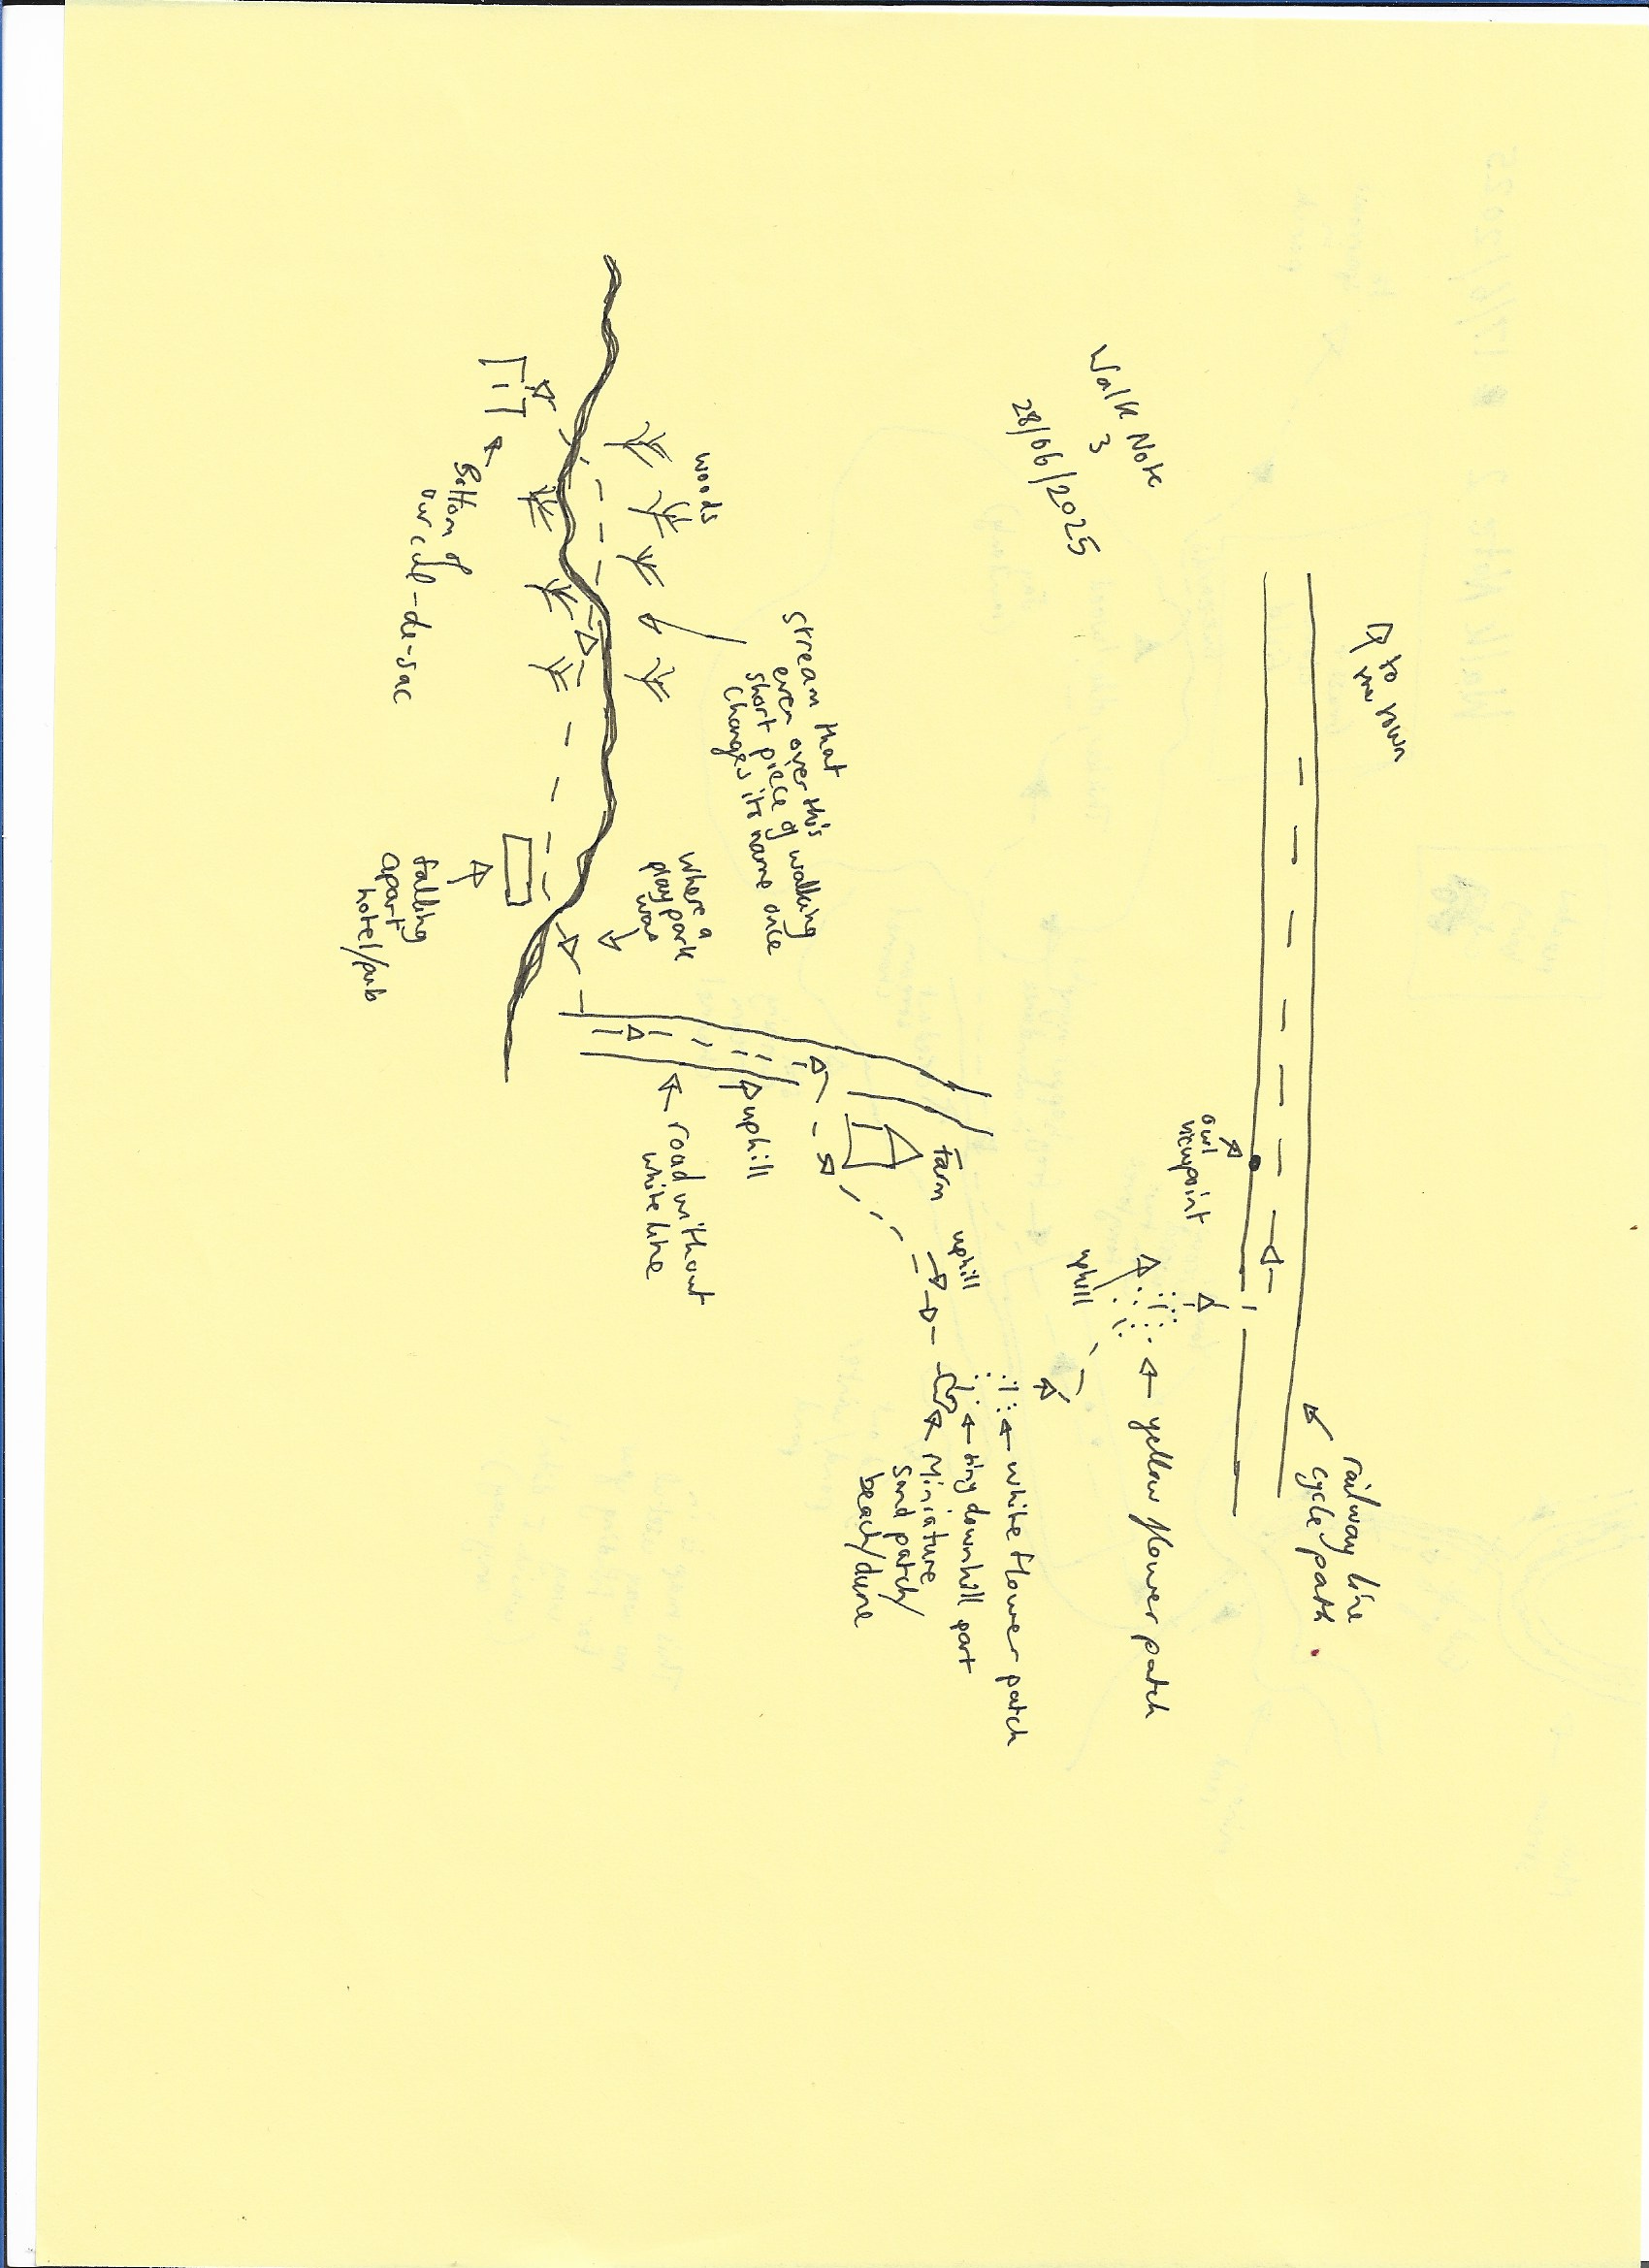 to
the town
railway line
cycle path
Walk Note
3
28/06/2025
owl
viewpoint
yellow flower patch
uphill
white flower patch
tiny downhill part
Miniature
sand patch/
beach/dune
uphill
farm
stream that
even over this
short piece of walking
changes its name once
woods
where a
play park
was
uphill
road without
white line
Bottom of
our cul-de-sac
falling
apart
hotel/pub